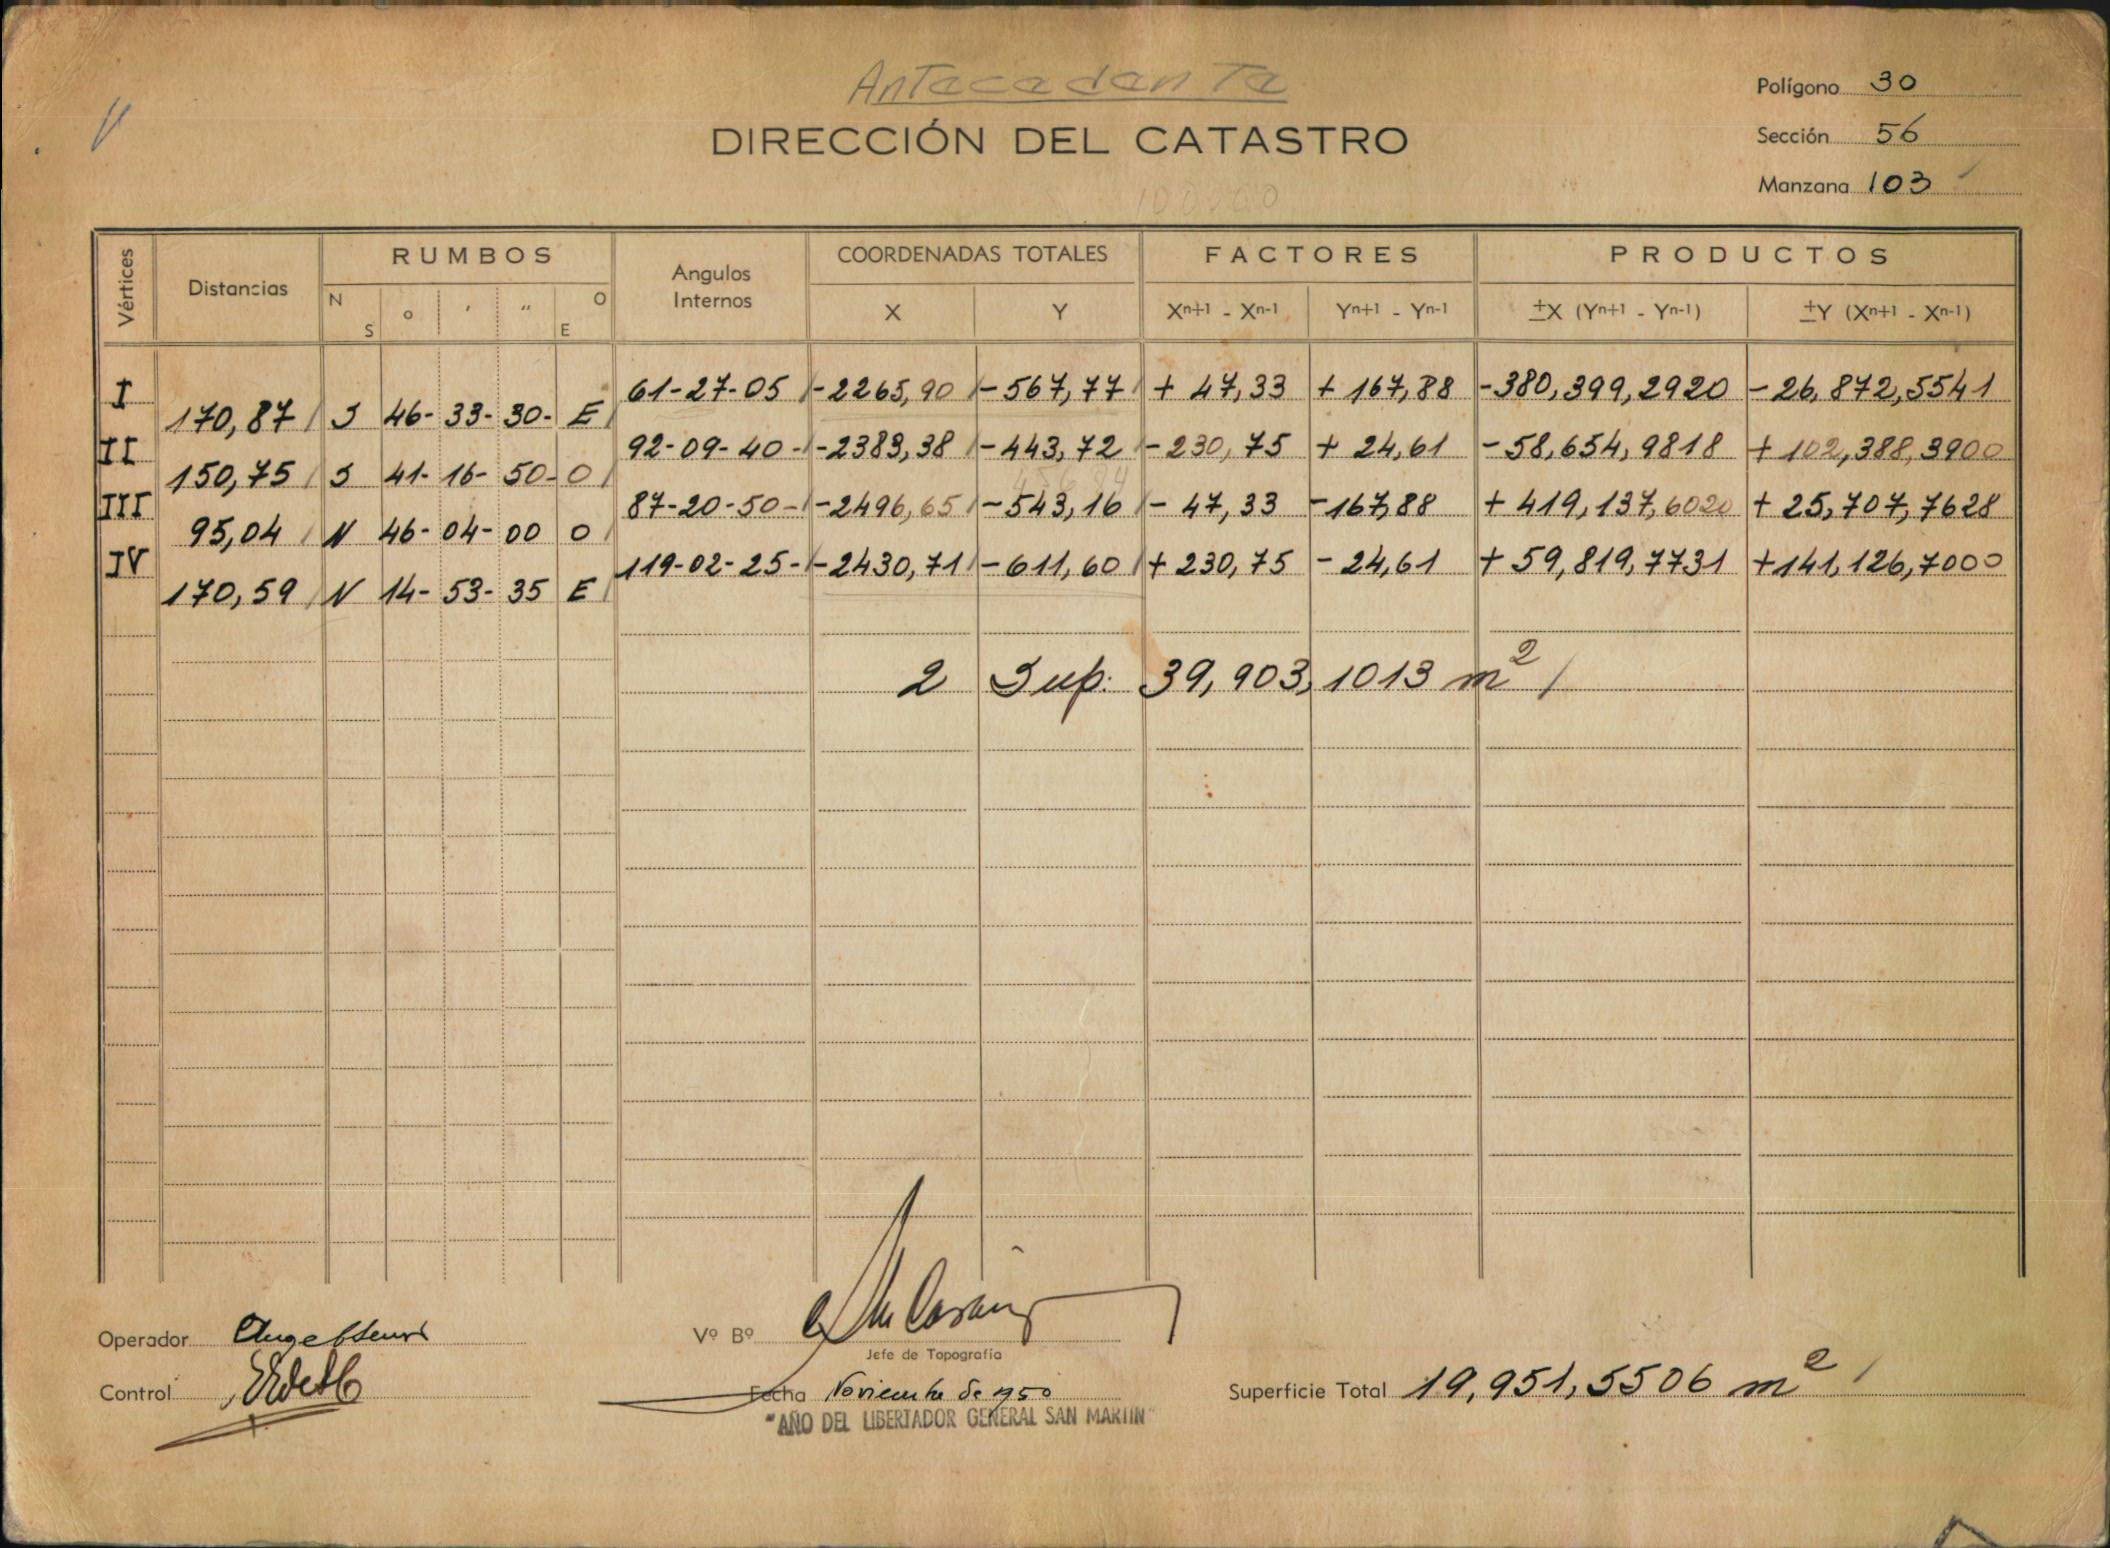 Antecedente
DIRECCIÓN DEL CATASTRO
Polígono 30
Sección 56
Manzana 103
Vértices Distancias RUMBOS Angulos Internos COORDENADAS TOTALES FACTORES PRODUCTOS
N S o ' " O E X Y Xn+1 - Xn-1 Yn+1 - Yn-1 ±X (Yn+1 - Yn-1) ±Y (Xn+1 - Xn-1)
I 61-27-05 -2265,90 -567,77 + 47,33 + 167,88 -380,399,2920 -26,872,5541
170,87 S 46- 33- 30- E
II 92-09-40- -2383,38 -443,72 -230,75 + 24,61 -58,654,9818 +102,388,3900
150,75 S 41- 16- 50- O
III 87-20-50- -2496,65 -543,16 - 47,33 -167,88 + 419,137,6020 + 25,707,7628
95,04 N 46- 04- 00 O
IV 119-02-25- -2430,71 -611,60 + 230,75 - 24,61 + 59,819,7731 +141,126,7000
170,59 N 14- 53- 35 E
2 Sup. 39,903,1013 m²
Operador
Control
Vº Bº
Jefe de Topografía
Fecha Noviembre de 1950
"AÑO DEL LIBERTADOR GENERAL SAN MARTIN"
Superficie Total 19,951,5506 m²